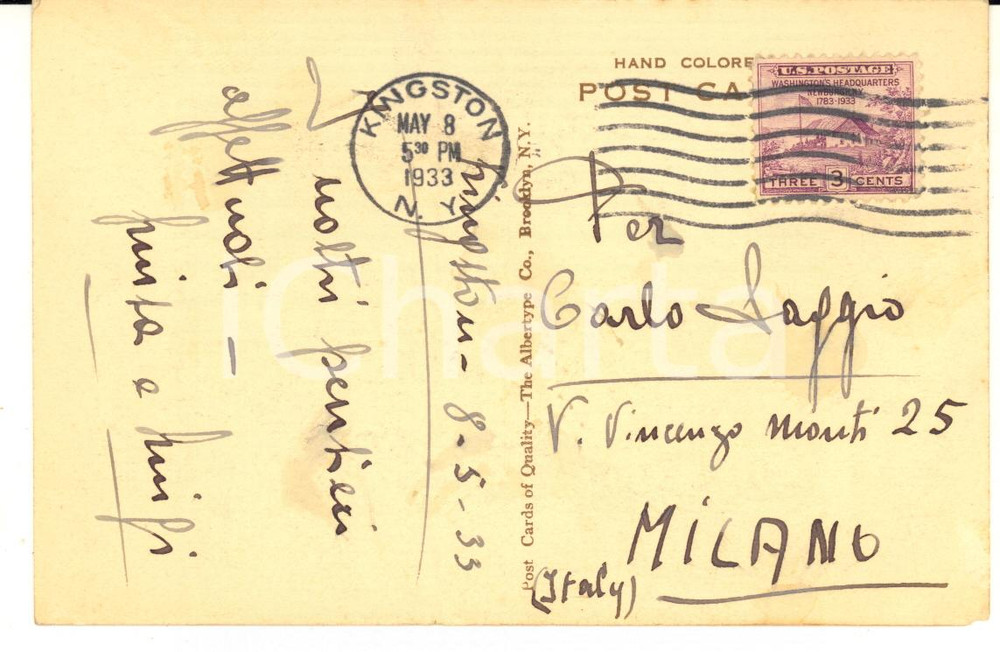 HAND COLORE
POST CA
U.S. POSTAGE
WASHINGTON'S HEADQUARTERS
NEWBURGH, N.Y.
1783-1933
THREE 3 CENTS
KINGSTON
MAY 8
5 30 PM
1933
N. Y.
Post Cards of Quality—The Albertype Co., Brooklyn, N.Y.
Kingston - 8-5-33
I nostri pensieri
affettuosi -
e Luigi
Per
Carlo Saggio
V. Vincenzo Monti 25
MILANO
(Italy)
iCharta